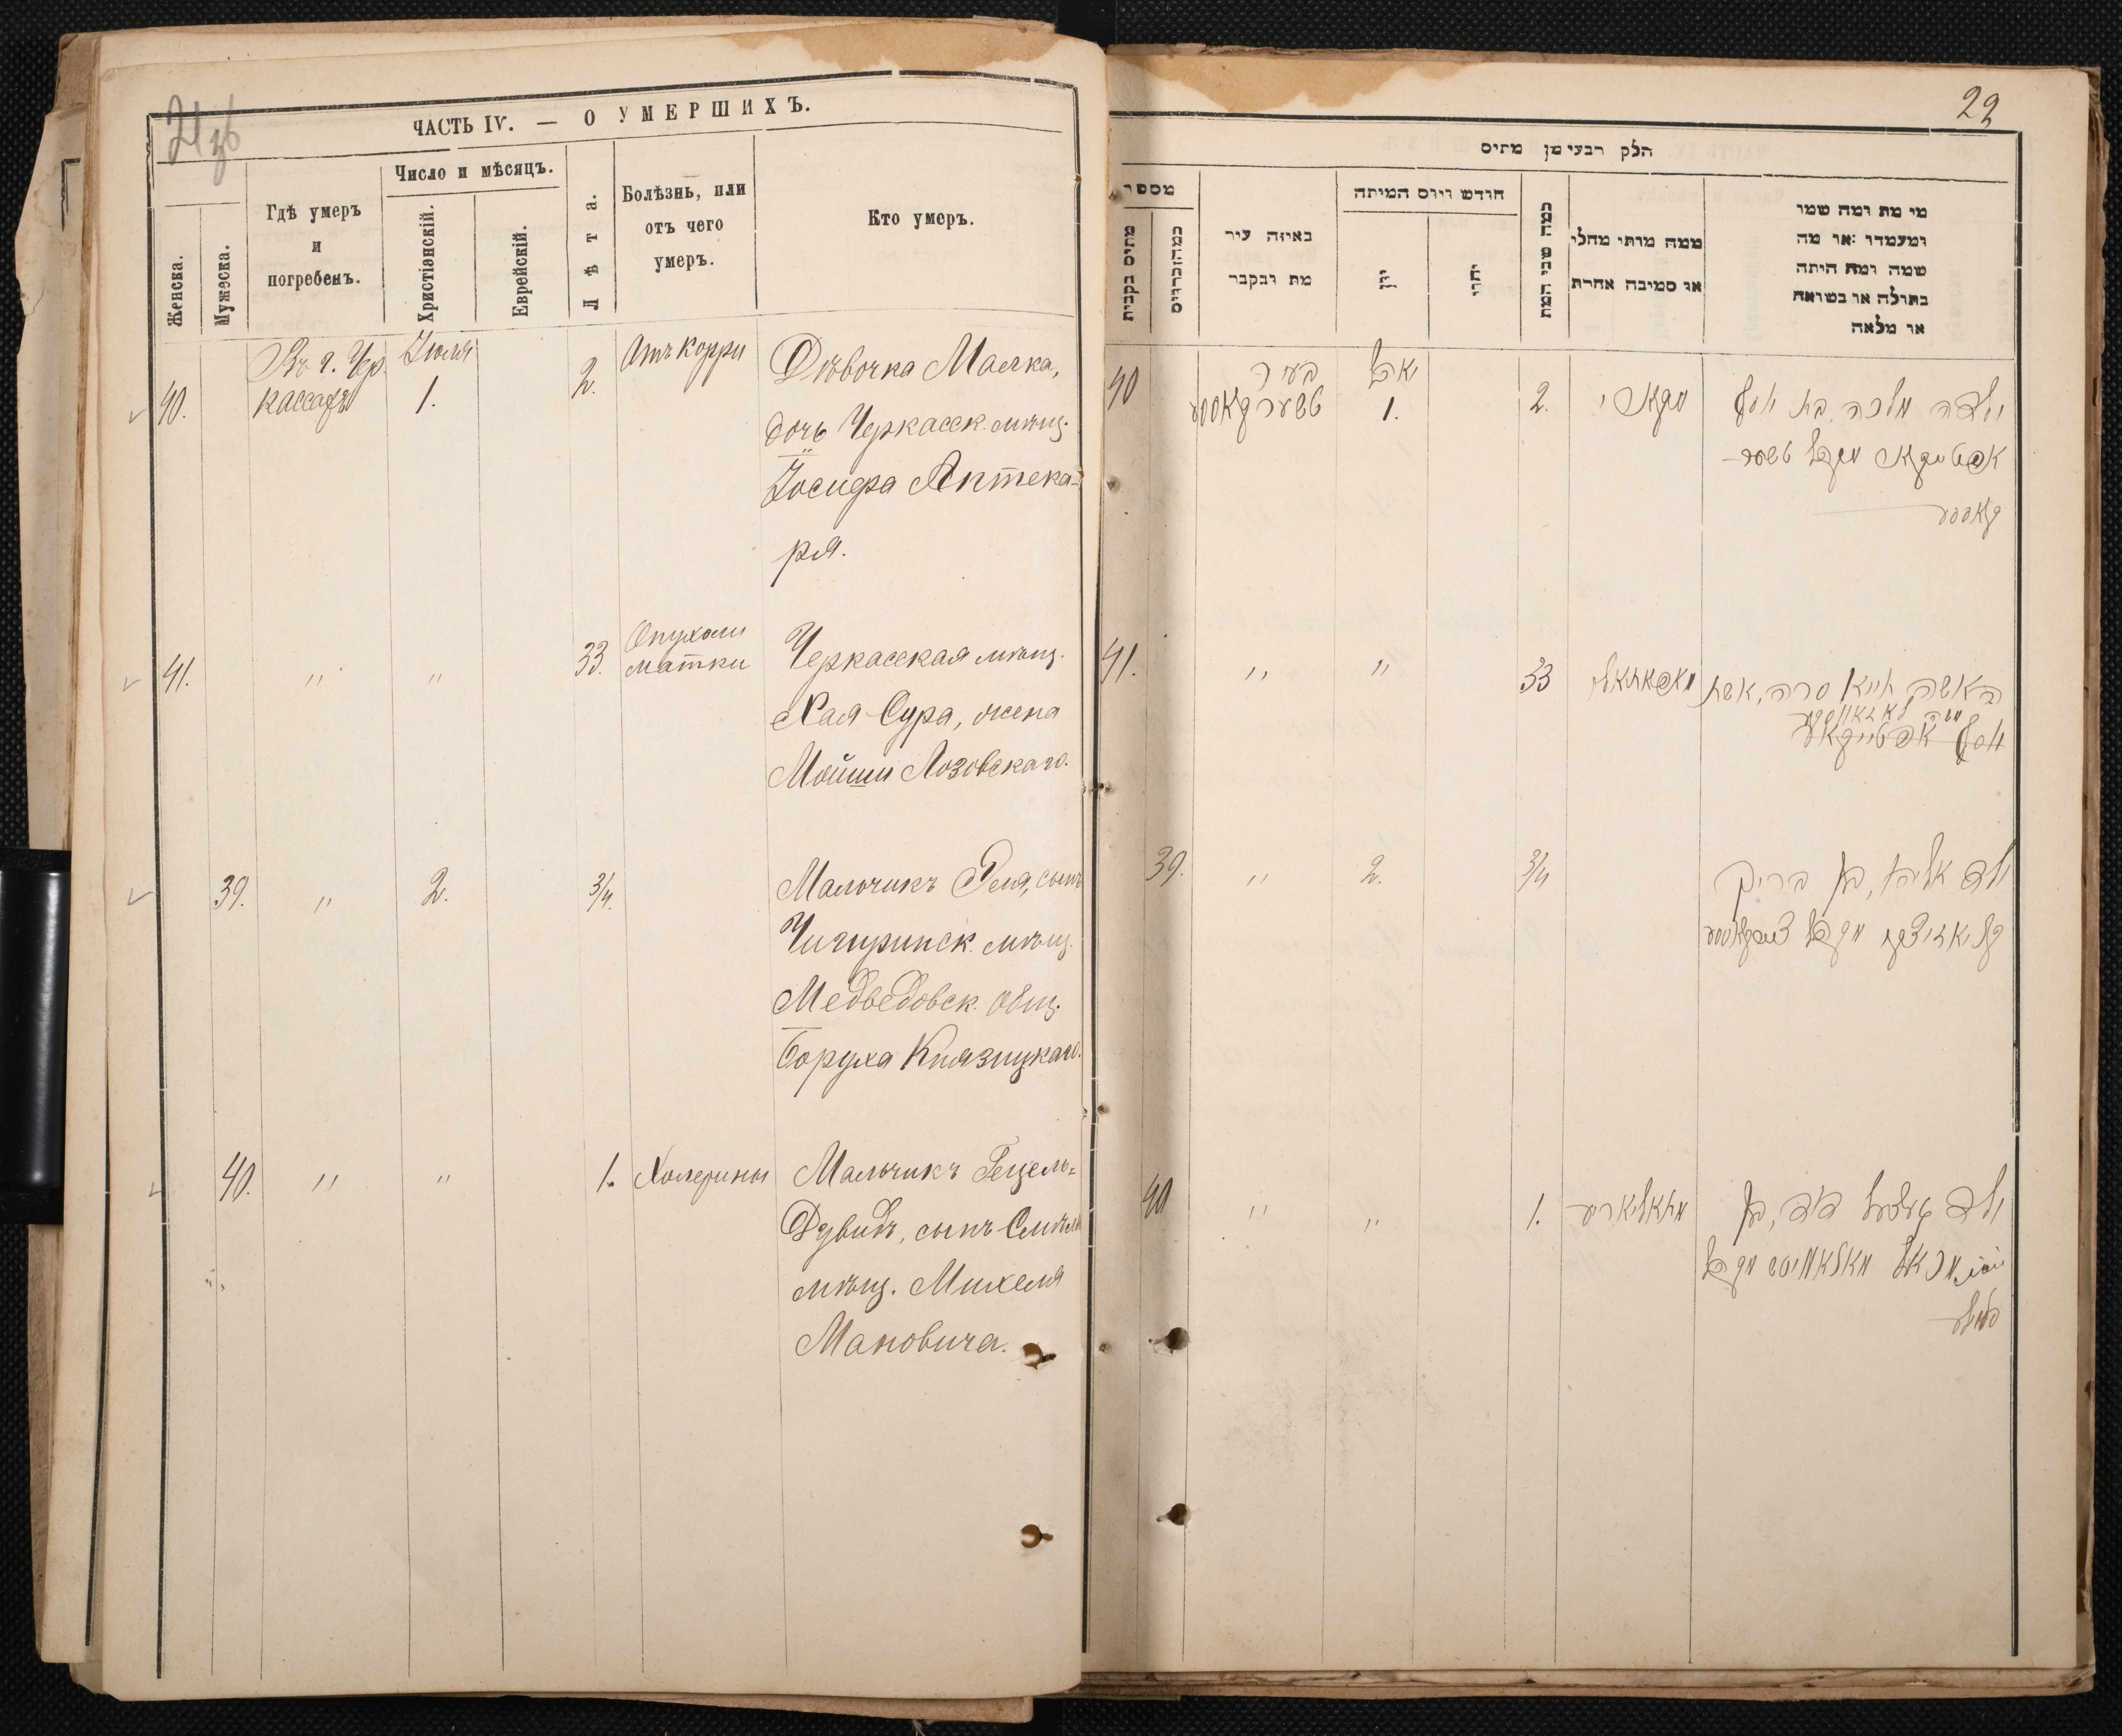 ЧАСТЬ IV. — О УМЕРШИХЪ.
Женска.
Мужеска.
Гдѣ умеръ
и
погребенъ.
Число и мѣсяцъ.
Христіянскій.
Еврейскій.
Лѣта.
Болѣзнь, или
отъ чего
умеръ.
Кто умеръ.
40.
Въ г. Чер.
кассахъ
Іюля
1.
2.
Отъ корри
Дѣвочка Малка,
дочь Черкасск. мѣщ.
Іосифа Аптека-
ря.
41.
"
"
33.
Опухоли
матки
Черкасская мѣщ.
Хая-Сура, жена
Мойши Лозовскаго.
39.
"
2.
3/4.
Мальчикъ Эля, сынъ
Чигиринск. мѣщ.
Медведовск. общ.
Боруха Князицкаго.
40.
"
"
1.
Холерины
Мальчикъ Гецель-
Дувидъ, сынъ
мѣщ. Михеля
Мановича.
22
חלק רבעי מן מתים
מספר
מתים נקבות
כמה זכרים
באיזה עיר
מת ונקבר
חודש ויום המיתה
יון
יהודי
כמה שני המת
ממה מותו מחלי
או סמיבה אחרת
מי מת ומה שמו
ומעמדו או מה
שמה ומה היתה
בתולה או נשואה
או מלאה
40
בעיר
טשערקאססע
יאהל
1.
2.
ילדה מלכה בת יוסף
מקהל טשער-
קאסס
41.
"
"
33
האשה חייא שרה, אשת
משה
יוסף
39.
"
2.
3/4
ילד אליהו, בן ברוך
מקהל
40
"
"
1.
ילד געצעל דוד, בן
מיכאל מקהל